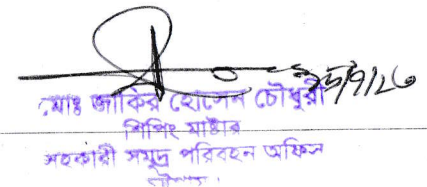 মোঃ জাকির হোসেন চৌধুরী
শিপিং মাষ্টার
সরকারী সমুদ্র পরিবহন অফিস